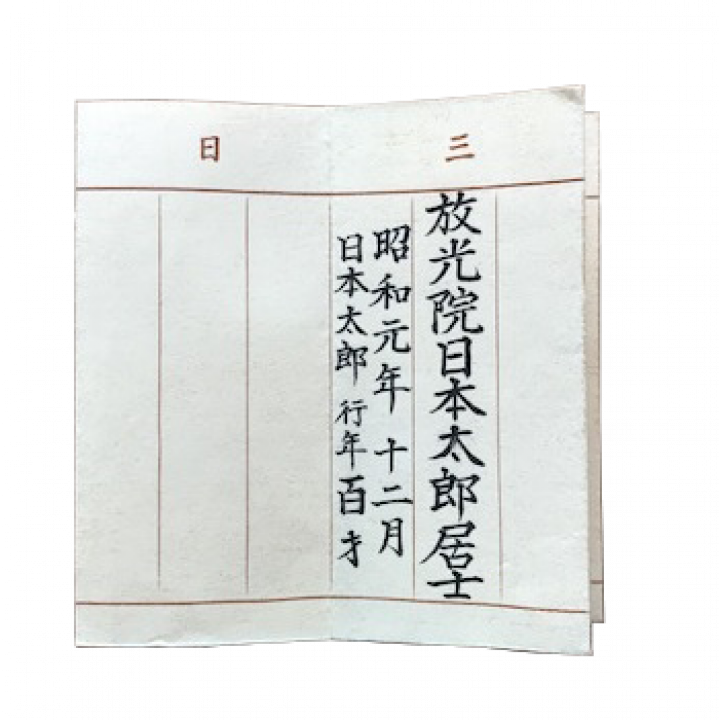 三日
放光院日本太郎居士
昭和元年 十二月
日本太郎 行年百才